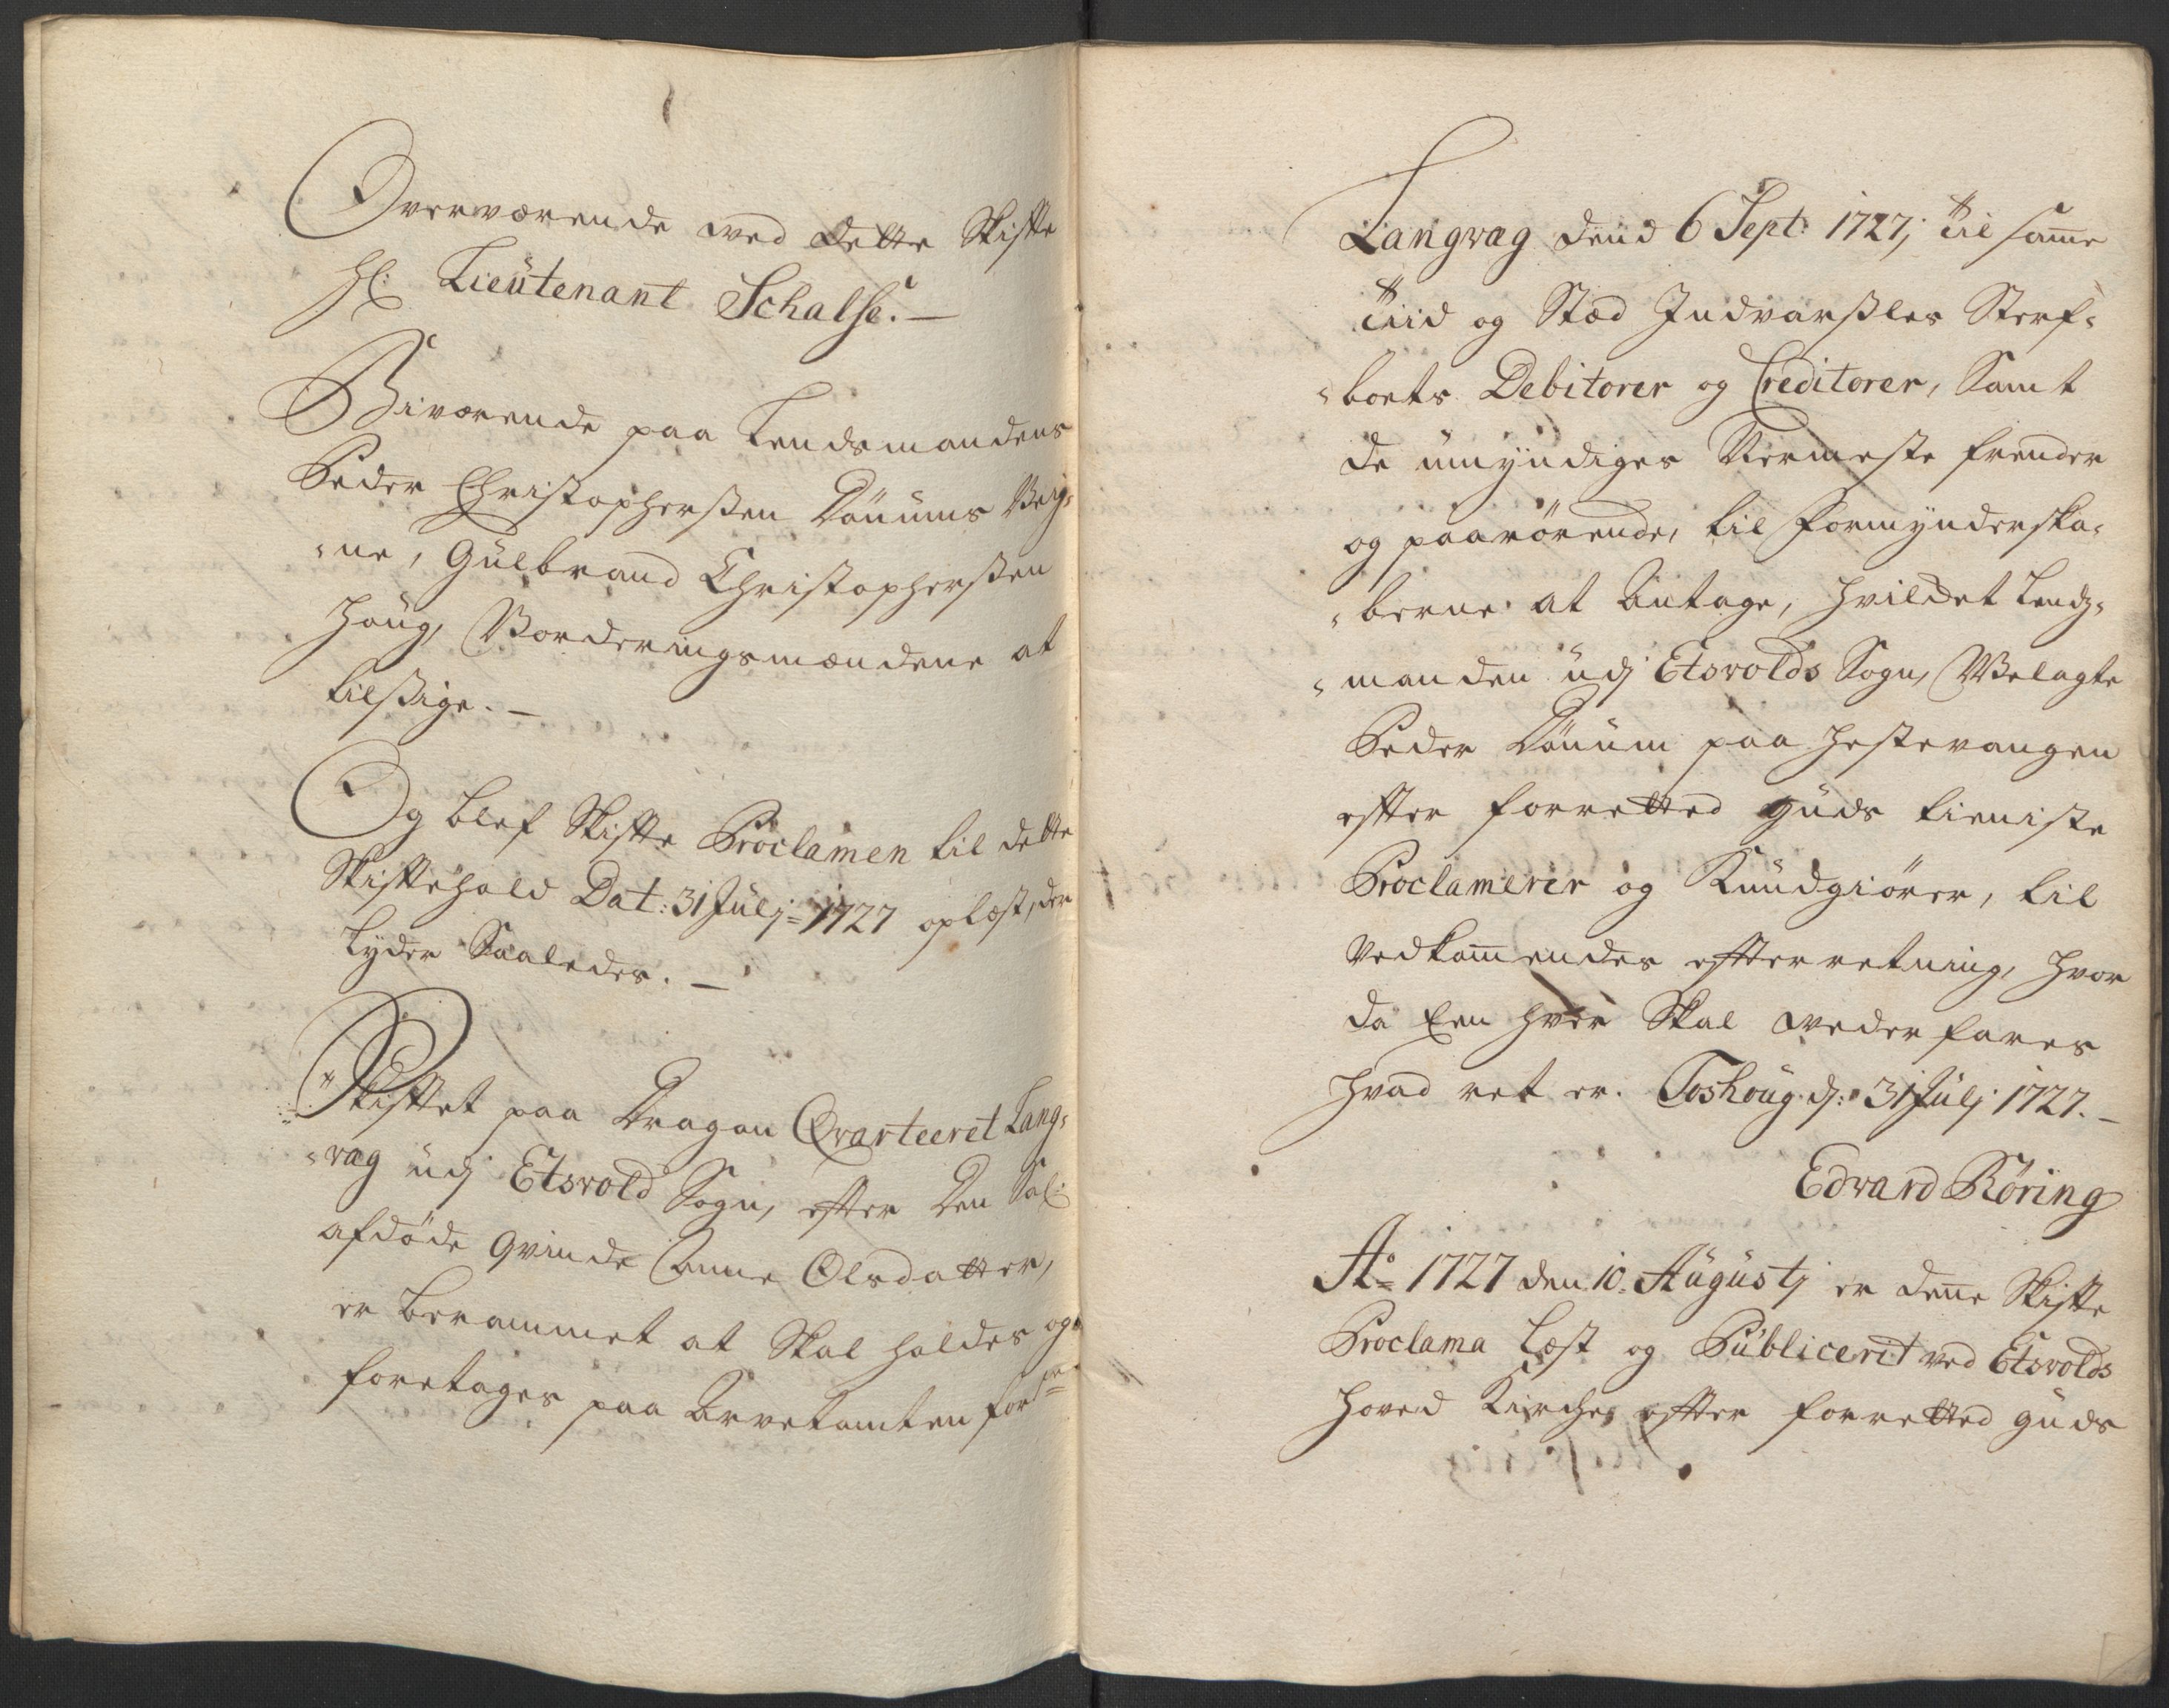 Overværende ved dette Skifte
Hr: Lieutenant Schalse.—
Biværende paa Lendsmandens
Peder Christopherßen Dønnums Veig-
-ne, Gulbrand Christopherßen
Houg, Vorderingsmændene at
tilßige.—
Og blef Skifte Proclamen til dette
Skiftehold Dat: 31 Julj 1727 oplæst, der
lyder Saaledes.—
Skiftet paa Dragon Qvarteeret Lang-
-vag udj Etsvold Sogn, efter den Sal:
afdøde Qvinde Anne Olsdatter,
er berammet at Skal holdes og
foretages paa Arvetomten for
Langvag dend 6 Sept: 1727, Til same
Tiid og Stæd Indvarßles Sterf-
-boets Debitorer og Creditorer, Samt
de umyndiges Nermeste frender
og paarørende, til formynderska-
-berne at Antage, hvilcket Lends-
-manden udj Etsvolds Sogn, Velagte
Peder Dønnum paa Hestevangen
efter forretted Guds tieniste
Proclamerer og Kundgiører, til
Vedkommendes efterretning, hvor
da Een hver Skal vederfares
hvad ret er. Toshoug d: 31 Julj 1727.—
Edvard Röring
Ao 1727 den 10. Augustj er denne Skifte
Proclama Læst og Publicerit ved Etsvolds
Hoved Kirche, efter forretted Guds